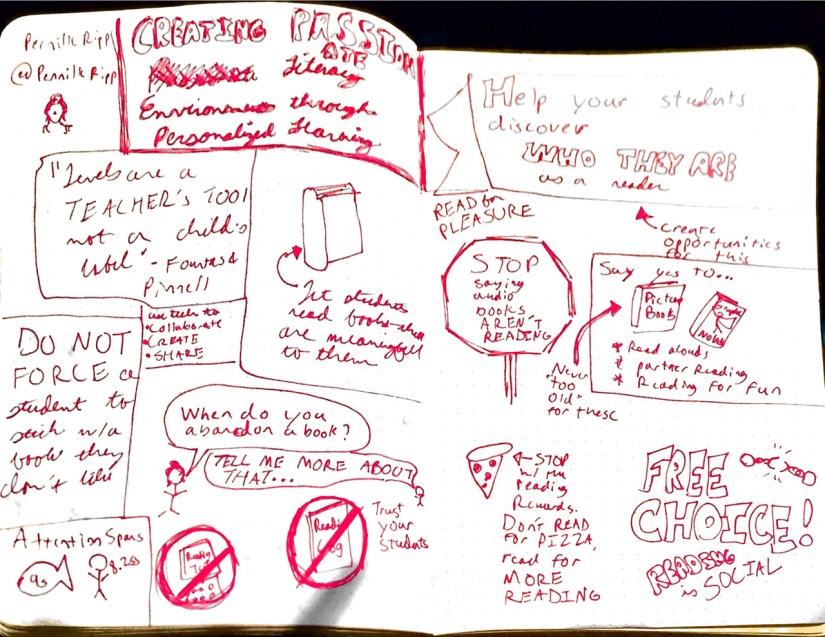 Pernille Ripp
@PernilleRipp
CREATING PASSION
ATE
Literacy
Environments through
Personalized Learning
"Levels are a
TEACHER'S TOOL
not a child's
label" - Fountas &
Pinnell
Let students
read books that
are meaningful
to them
use tech to
• Collaborate
• CREATE
• SHARE
DO NOT
FORCE a
student to
stick w/a
book they
don't like
When do you
abandon a book?
TELL ME MORE ABOUT
THAT...
Attention Spans
9s
8.25s
Reading
Reading
Log
Trust
your
Students
Help your students
discover
WHO THEY ARE
as a reader
READ for
PLEASURE
create
opportunities
for this
STOP
saying
audio
books
AREN'T
READING
Say yes to...
Picture
Books
Graphic
Novels
* Read alouds
* partner Reading
* Reading for fun
Never
"too
old"
for these
STOP
w/ the
reading
Rewards.
DON'T READ
for PIZZA,
read for
MORE
READING
FREE
CHOICE!
READING
is SOCIAL